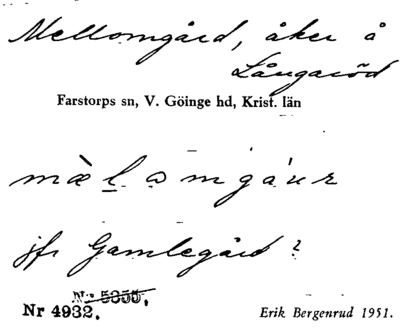 Mellomgård, åker å
Långaröd
Farstorps sn, V. Göinge hd, Krist. län
jfr Gamlegård?
Nr 5355.
Nr 4932.
Erik Bergenrud 1951.